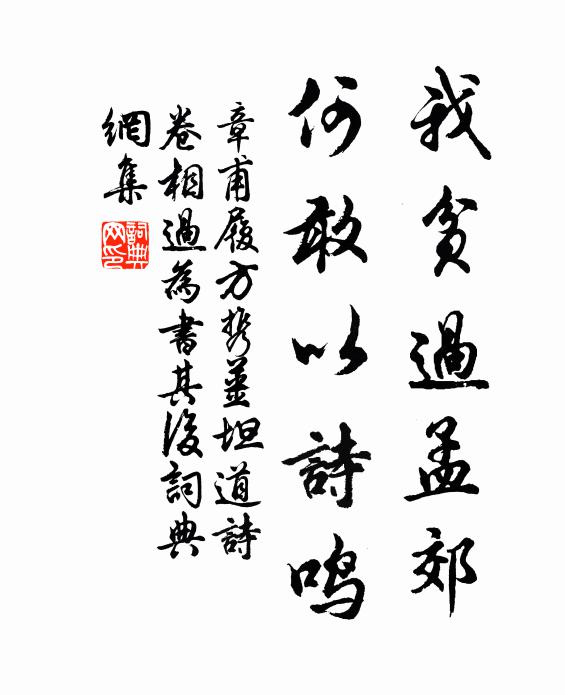 我貧過孟郊
何敢以詩鳴
章甫履方携姜坦道詩
卷相過為書其後詞典
網集
詞典網印